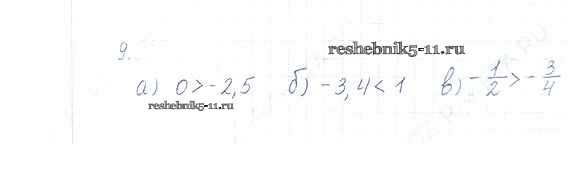 9.
reshebnik5-11.ru
а) 0 > -2,5 б) -3,4 < 1 в) -1/2 > -3/4
reshebnik5-11.ru